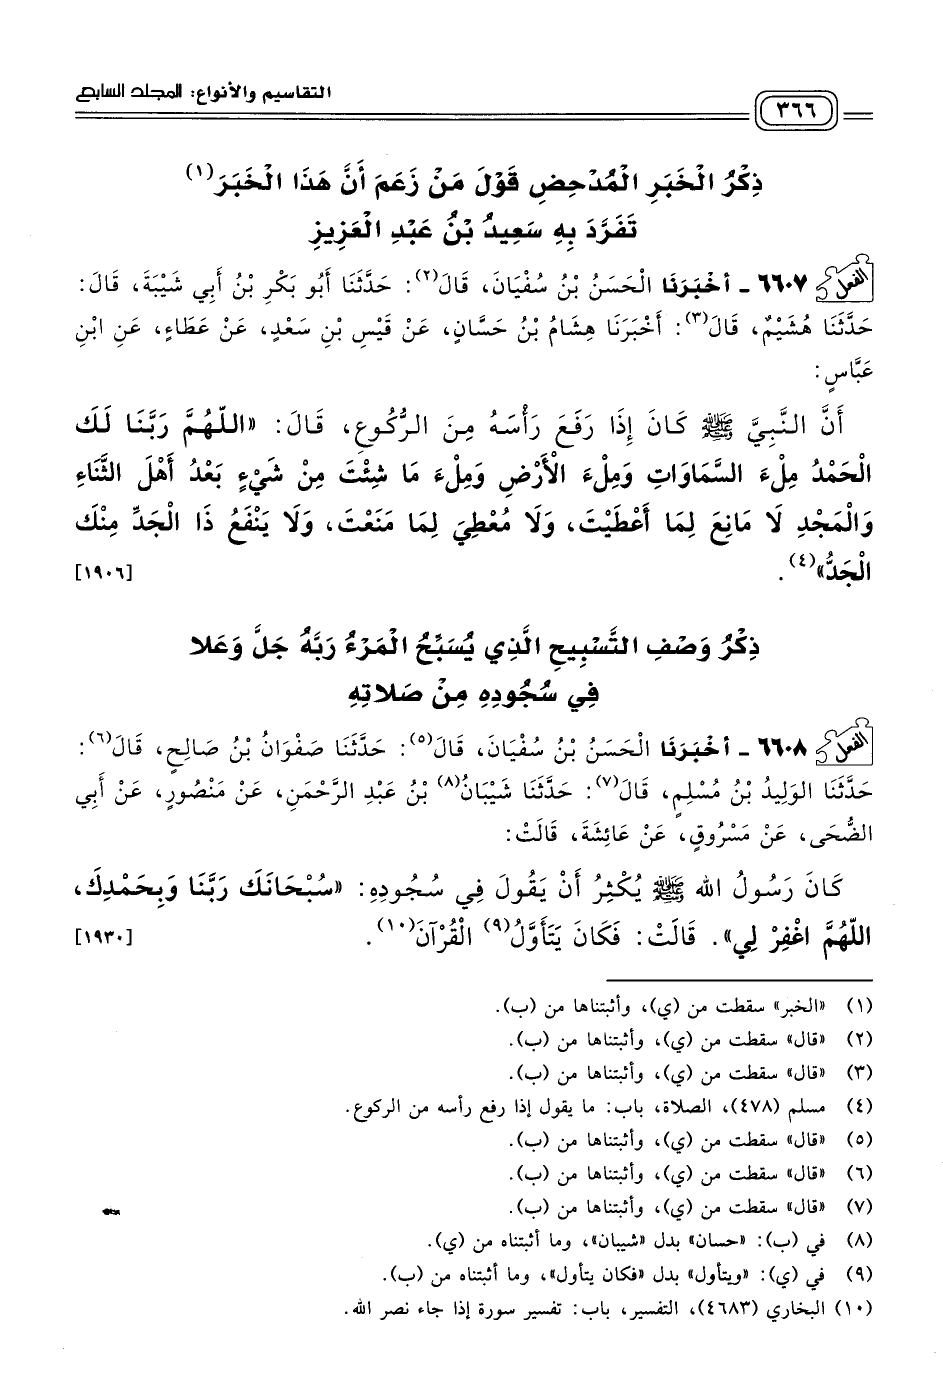 التقاسيم والأنواع: المجلد السابع
٣٦٦
ذِكْرُ الْخَبَرِ الْمُدْحِضِ قَوْلَ مَنْ زَعَمَ أَنَّ هَذَا الْخَبَرَ(١)
تَفَرَّدَ بِهِ سَعِيدُ بْنُ عَبْدِ الْعَزِيزِ
الفعل ٦٦٠٧ - أَخْبَرَنَا الْحَسَنُ بْنُ سُفْيَانَ، قَالَ(٢): حَدَّثَنَا أَبُو بَكْرِ بْنُ أَبِي شَيْبَةَ، قَالَ:
حَدَّثَنَا هُشَيْمٌ، قَالَ(٣): أَخْبَرَنَا هِشَامُ بْنُ حَسَّانٍ، عَنْ قَيْسِ بْنِ سَعْدٍ، عَنْ عَطَاءٍ، عَنِ ابْنِ
عَبَّاسٍ:
أَنَّ النَّبِيَّ ﷺ كَانَ إِذَا رَفَعَ رَأْسَهُ مِنَ الرُّكُوعِ، قَالَ: «اللَّهُمَّ رَبَّنَا لَكَ
الْحَمْدُ مِلْءَ السَّمَاوَاتِ وَمِلْءَ الْأَرْضِ وَمِلْءَ مَا شِئْتَ مِنْ شَيْءٍ بَعْدُ أَهْلَ الثَّنَاءِ
وَالْمَجْدِ لَا مَانِعَ لِمَا أَعْطَيْتَ، وَلَا مُعْطِيَ لِمَا مَنَعْتَ، وَلَا يَنْفَعُ ذَا الْجَدِّ مِنْكَ
الْجَدُّ»(٤). [١٩٠٦]
ذِكْرُ وَصْفِ التَّسْبِيحِ الَّذِي يُسَبِّحُ الْمَرْءُ رَبَّهُ جَلَّ وَعَلَا
فِي سُجُودِهِ مِنْ صَلَاتِهِ
الفعل ٦٦٠٨ - أَخْبَرَنَا الْحَسَنُ بْنُ سُفْيَانَ، قَالَ(٥): حَدَّثَنَا صَفْوَانُ بْنُ صَالِحٍ، قَالَ(٦):
حَدَّثَنَا الْوَلِيدُ بْنُ مُسْلِمٍ، قَالَ(٧): حَدَّثَنَا شَيْبَانُ(٨) بْنُ عَبْدِ الرَّحْمَنِ، عَنْ مَنْصُورٍ، عَنْ أَبِي
الضُّحَى، عَنْ مَسْرُوقٍ، عَنْ عَائِشَةَ، قَالَتْ:
كَانَ رَسُولُ الله ﷺ يُكْثِرُ أَنْ يَقُولَ فِي سُجُودِهِ: «سُبْحَانَكَ رَبَّنَا وَبِحَمْدِكَ،
اللَّهُمَّ اغْفِرْ لِي». قَالَتْ: فَكَانَ يَتَأَوَّلُ(٩) الْقُرْآنَ(١٠). [١٩٣٠]
(١) «الخبر» سقطت من (ي)، وأثبتناها من (ب).
(٢) «قال» سقطت من (ي)، وأثبتناها من (ب).
(٣) «قال» سقطت من (ي)، وأثبتناها من (ب).
(٤) مسلم (٤٧٨)، الصلاة، باب: ما يقول إذا رفع رأسه من الركوع.
(٥) «قال» سقطت من (ي)، وأثبتناها من (ب).
(٦) «قال» سقطت من (ي)، وأثبتناها من (ب).
(٧) «قال» سقطت من (ي)، وأثبتناها من (ب).
(٨) في (ب): «حسان» بدل «شيبان»، وما أثبتناه من (ي).
(٩) في (ي): «ويتأول» بدل «فكان يتأول»، وما أثبتناه من (ب).
(١٠) البخاري (٤٦٨٣)، التفسير، باب: تفسير سورة إذا جاء نصر الله.